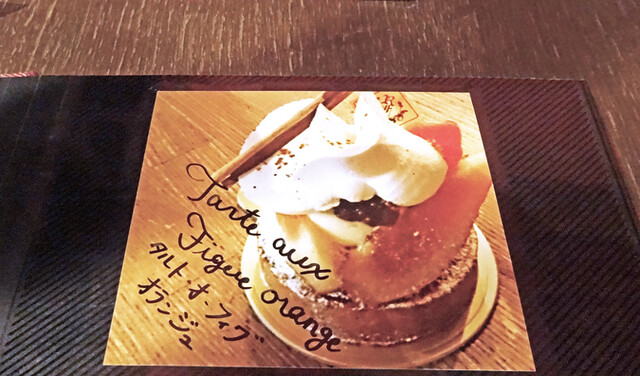 Tarte aux
Figue orange
タルト・オーフィグ
オランジュ